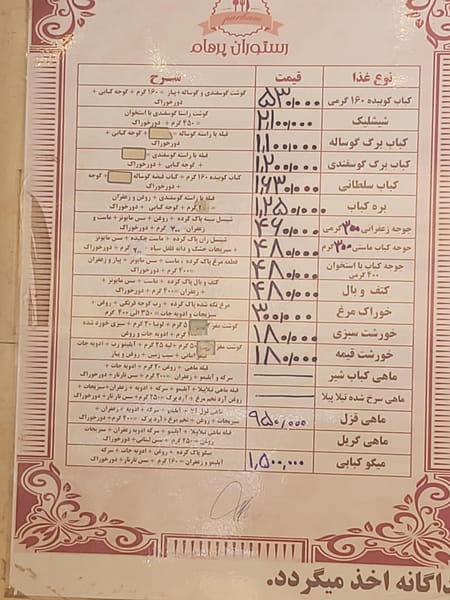 parham
رستوران پرهام
نوع غذا قیمت شرح
کباب کوبیده ۱۶۰ گرمی ۵۳۰/۰۰۰ گوشت گوسفندی و گوساله+پیاز = ۱۶۰ گرم + گوجه کبابی + دورخوراک
شیشلیک ۲۱۰۰/۰۰۰ گوشت راسته گوسفندی با استخوان = ۴۵۰ گرم + دورخوراک
کباب برگ گوساله ۱,۱۰۰/۰۰۰ فیله یا راسته گوساله = گوجه کبابی + دورخوراک
کباب برگ گوسفندی ۱,۲۰۰/۰۰۰ فیله یا راسته گوسفندی = + گوجه کبابی + دورخوراک
کباب سلطانی ۱,۶۳۰/۰۰۰ کباب کوبیده ۱۶۰ گرم + کباب فیله گوساله گوجه + دورخوراک
بره کباب ۱,۲۵۰/۰۰۰ فیله یا راسته گوسفندی + روغن و زعفران گرم + گوجه کبابی + دورخوراک
جوجه زعفرانی ۳۵۰ گرمی ۴۶۰/۰۰۰ شینسل سینه پاک کرده + روغن + سس مایونز + ماست و زعفران ۲۰۰ گرم + دورخوراک
جوجه کباب ماستی ۳۵۰ گرم ۴۸۰/۰۰۰ شینسل ران پاک کرده + ماست چکیده + سس مایونز + سبزیجات خشک و دانه فلفل سیاه ۲۰۰ گرم + دورخوراک
جوجه کباب با استخوان ۴۰۰ گرمی ۴۸۰/۰۰۰ قطعه مرغ پاک کرده + ماست + سس مایونز + پیاز و زعفران = ۴۰۰ گرم + دورخوراک
کتف و بال ۴۸۰/۰۰۰ کتف و بال پاک کرده + ماست + سس مایونز + زعفران = ۴۰۰ گرم + دورخوراک
خوراک مرغ ۳۰۰/۰۰۰ مرغ تکه شده پاک کرده + رب گوجه فرنگی + روغن + سبزیجات و ادویه جات = ۳۵۰ الی ۴۰۰ گرم
خورشت سبزی ۱۸۰/۰۰۰ گوشت مغز گرم + لوبیا ۲۰ گرم + سبزی خورد شده گرم + ادویه جات و روغن
خورشت قیمه ۱۸۰/۰۰۰ گوشت مغز گرم + لپه ۲۵ گرم + آبلیمو رب + ادویه جات عمانی + سیب زمینی + روغن و پیاز
ماهی کباب شیر — فیله ماهی + روغن ۲۰ گرم + ادویه جات + سرکه و آبلیمو + زعفران = ۲۰۰ گرم + سس تارتار + دورخوراک
ماهی سرخ شده تیلا پیلا — فیله ماهی تیلاپیلا + آبلیمو + سرکه + ادویه + زعفران+سبزیجات + روغن آرد تخم مرغ + آرد پرک = ۲۵۰ گرم + سس تارتار + دورخوراک
ماهی قزل ۹۵۰/۰۰۰ ماهی قزل آلا + آبلیمو + سرکه + ادویه + زعفران + سبزیجات + روغن + تخم مرغ + آرد پرک = ۴۰۰ گرم + دورخوراک
ماهی گریل ماهی تیلاپیلا + آبلیمو + ادویه جات + سرکه زعفران + سبزیجات + روغن = ۲۵۰ گرم + سس لبنانی + دورخوراک
میگو کبابی ۱,۵۰۰,۰۰۰ میگو پاک کرده + روغن + ادویه جات + سرکه آبلیمو و زعفران = ۱۶۰ گرم + سس تارتار + دورخوراک
داگانه اخذ میگردد.